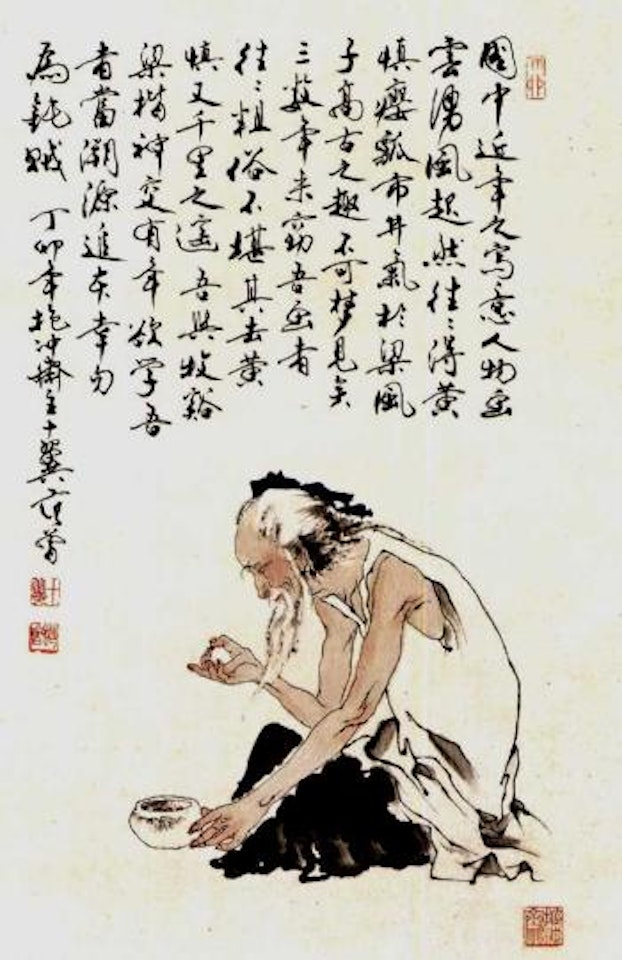 國中近年之寫意人物画
雲湧風起然往〻得黄
慎癭瓢市井氣於梁風
子高古之趣不可梦見矣
三数年来窃吾画者
往〻粗俗不堪其去黄
慎又千里之遥吾與牧谿
梁楷神交有年欲学吾
者當溯源追本幸勿
為鈍贼 丁卯年抱冲斋主十翼范曾
十翼